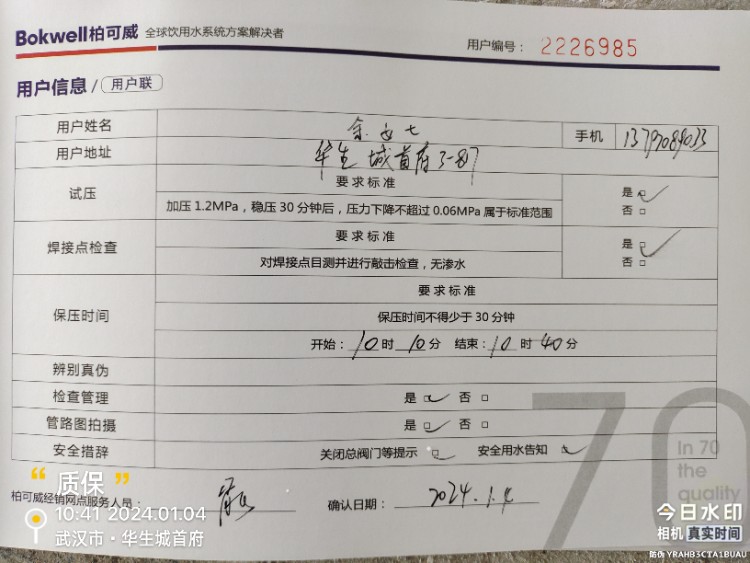 Bokwell柏可威 全球饮用水系统方案解决者
用户编号: 2226985
用户信息 / 用户联
用户姓名 余 七 手机
用户地址 华生城首府3-817
试压 要求标准 是
加压 1.2MPa，稳压 30 分钟后，压力下降不超过 0.06MPa 属于标准范围 否
焊接点检查 要求标准 是
对焊接点目测并进行敲击检查，无渗水 否
保压时间 要求标准
保压时间不得少于 30 分钟
开始: 10 时 10 分 结束: 10 时 40 分
辨别真伪
检查管理 是 否
管路图拍摄 是 否
安全措辞 关闭总阀门等提示 安全用水告知
70
In 70
the
quality
“ 质保 ”
柏可威经销网点服务人员: 确认日期: 2024.1.4
10:41 2024.01.04
武汉市·华生城首府
今日水印
相机 真实时间
防伪 YRAHB3CTA1BUAU